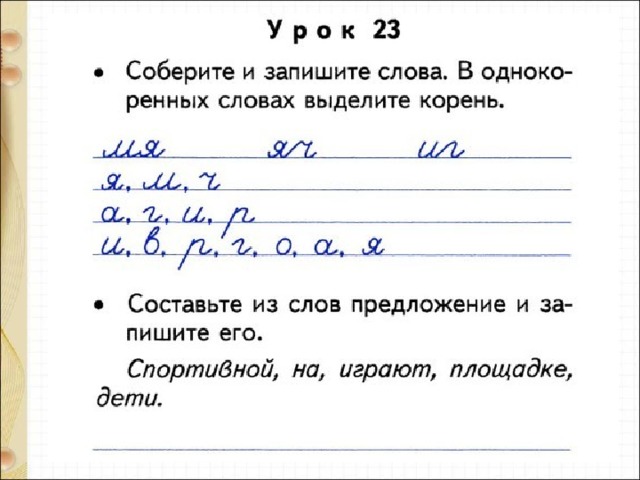 Урок 23
• Соберите и запишите слова. В одноко-
ренных словах выделите корень.
мя яч иг
я, м, ч
а, г, и, р
и, в, р, г, о, а, я
• Составьте из слов предложение и за-
пишите его.
Спортивной, на, играют, площадке,
дети.